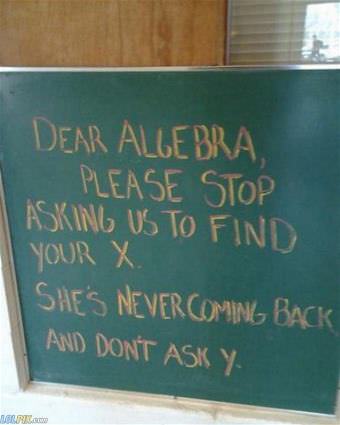 DEAR ALGEBRA,
PLEASE STOP
ASKING US TO FIND
YOUR X.
SHE'S NEVER COMING BACK
AND DON'T ASK Y.
LOLPIX.com